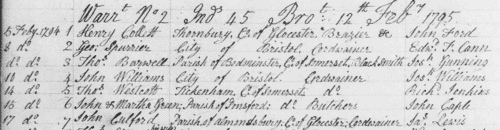 Warrt. No 2 Ind 45 Brot. 12th Feby 1795
5 Feby. 1794 1 Henry Collett Thornbury, C. of Glocester Brazier &c John Ford
8 do 2 Geo. Spurrier City of Bristol Cordwainer Edwd. T. Cann
do do 3 Thos. Barwell Parish of Bedminster, C. of Somerset, Black Smith Jos. Gunning
10 do 4 John Williams City of Bristol Cordwainer Jos. Williams
14 do 5 Thos. Westcott Tickenham, C. of Somerset, do Richd. Jenkins
15 do 6 John & Martha Green; Parish of do Butchers John Caple
17 do 7 John Parish of Almondsbury; C. of Glocester; Cordwainer Jas. Lewis